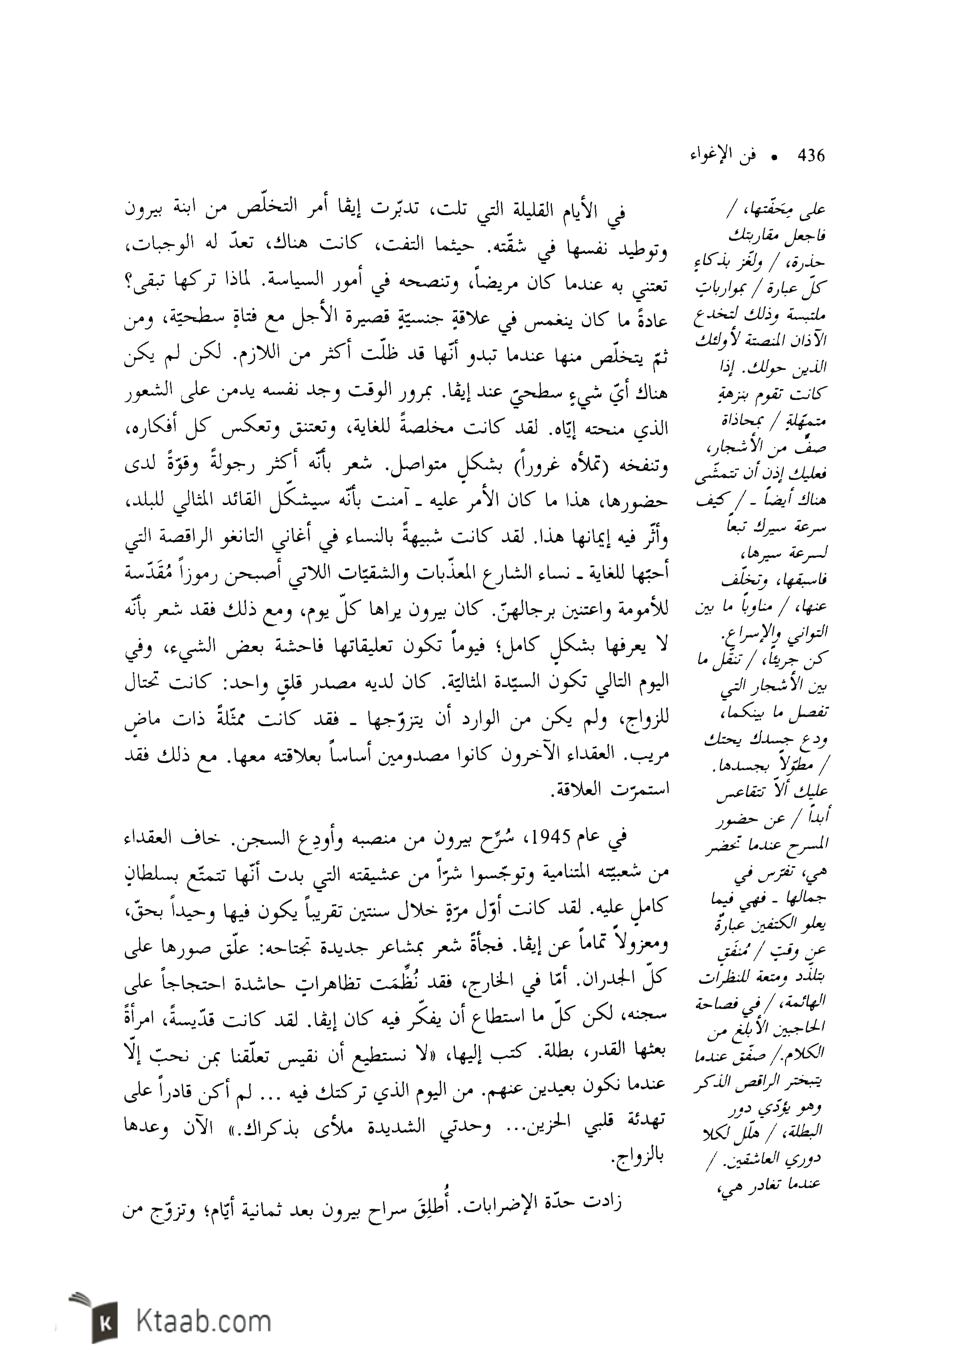 436 • فن الإغواء
على مِحَفّتها، /
فاجعل مقاربتك
حذرة، / ولغّز بذكاءٍ
كلّ عبارة / بمواربات
ملتبسة وذلك لتخدع
الآذان المنصتة لأولئك
الذين حولك. إذا
كانت تقوم بنزهةٍ
متمهّلةٍ / بمحاذاة
صفٍّ من الأشجار،
فعليك إذن أن تتمشّى
هناك أيضاً ـ / كيف
سرعة سيرك تبعاً
لسرعة سيرها،
فاسبقها، وتخلّف
عنها، / مناوباً ما بين
التواني والإسراع.
كن جريئاً، / تنقّل ما
بين الأشجار التي
تفصل ما بينكما،
ودع جسدك يحتك
/ مطوّلاً بجسدها.
عليك ألاّ تتقاعس
أبداً / عن حضور
المسرح عندما تحضر
هي، تفرّس في
جمالها ـ فهي فيما
يعلو الكتفين عبارةٌ
عن وقتٍ / مُنفَقٍ
بتلذّد ومتعة للنظرات
الهائمة، / في فصاحة
الحاجبين الأبلغ من
الكلام./ صفّق عندما
يتبختر الراقص الذكر
وهو يؤدّي دور
البطلة، / هلّل لكلا
دوري العاشقين. /
عندما تغادر هي،
في الأيام القليلة التي تلت، تدبّرت إيڤا أمر التخلّص من ابنة بيرون
وتوطيد نفسها في شقّته. حيثما التفت، كانت هناك، تعدّ له الوجبات،
تعتني به عندما كان مريضاً، وتنصحه في أمور السياسة. لماذا تركها تبقى؟
عادةً ما كان ينغمس في علاقةٍ جنسيّةٍ قصيرة الأجل مع فتاةٍ سطحيّة، ومن
ثمّ يتخلّص منها عندما تبدو أنّها قد ظلّت أكثر من اللازم. لكن لم يكن
هناك أيّ شيءٍ سطحيّ عند إيڤا. بمرور الوقت وجد نفسه يدمن على الشعور
الذي منحته إيّاه. لقد كانت مخلصةً للغاية، وتعتنق وتعكس كل أفكاره،
وتنفخه (تملأه غروراً) بشكلٍ متواصل. شعر بأنّه أكثر رجولةً وقوّةً لدى
حضورها، هذا ما كان الأمر عليه ـ آمنت بأنّه سيشكّل القائد المثالي للبلد،
وأثّر فيه إيمانها هذا. لقد كانت شبيهةً بالنساء في أغاني التانغو الراقصة التي
أحبّها للغاية ـ نساء الشارع المعذّبات والشقيّات اللاتي أصبحن رموزاً مُقَدّسة
للأمومة واعتنين برجالهنّ. كان بيرون يراها كلّ يوم، ومع ذلك فقد شعر بأنّه
لا يعرفها بشكلٍ كامل؛ فيوماً تكون تعليقاتها فاحشة بعض الشيء، وفي
اليوم التالي تكون السيّدة المثاليّة. كان لديه مصدر قلقٍ واحد: كانت تحتال
للزواج، ولم يكن من الوارد أن يتزوّجها ـ فقد كانت ممثّلةً ذات ماضٍ
مريب. العقداء الآخرون كانوا مصدومين أساساً بعلاقته معها. مع ذلك فقد
استمرّت العلاقة.
في عام 1945، سُرِّح بيرون من منصبه وأودِع السجن. خاف العقداء
من شعبيّته المتنامية وتوجّسوا شرّاً من عشيقته التي بدت أنّها تتمتّع بسلطانٍ
كاملٍ عليه. لقد كانت أوّل مرّةٍ خلال سنتين تقريباً يكون فيها وحيداً بحقّ،
ومعزولاً تماماً عن إيڤا. فجأةً شعر بمشاعر جديدة تجتاحه: علّق صورها على
كلّ الجدران. أمّا في الخارج، فقد نُظِّمَت تظاهراتٍ حاشدة احتجاجاً على
سجنه، لكن كلّ ما استطاع أن يفكّر فيه كان إيڤا. لقد كانت قدّيسةً، امرأةً
بعثها القدر، بطلة. كتب إليها، «لا نستطيع أن نقيس تعلّقنا بمن نحبّ إلّا
عندما نكون بعيدين عنهم. من اليوم الذي تركتك فيه ... لم أكن قادراً على
تهدئة قلبي الحزين... وحدتي الشديدة ملأى بذكراك.» الآن وعدها
بالزواج.
زادت حدّة الإضرابات. أُطلِقَ سراح بيرون بعد ثمانية أيّام؛ وتزوّج من
K Ktaab.com